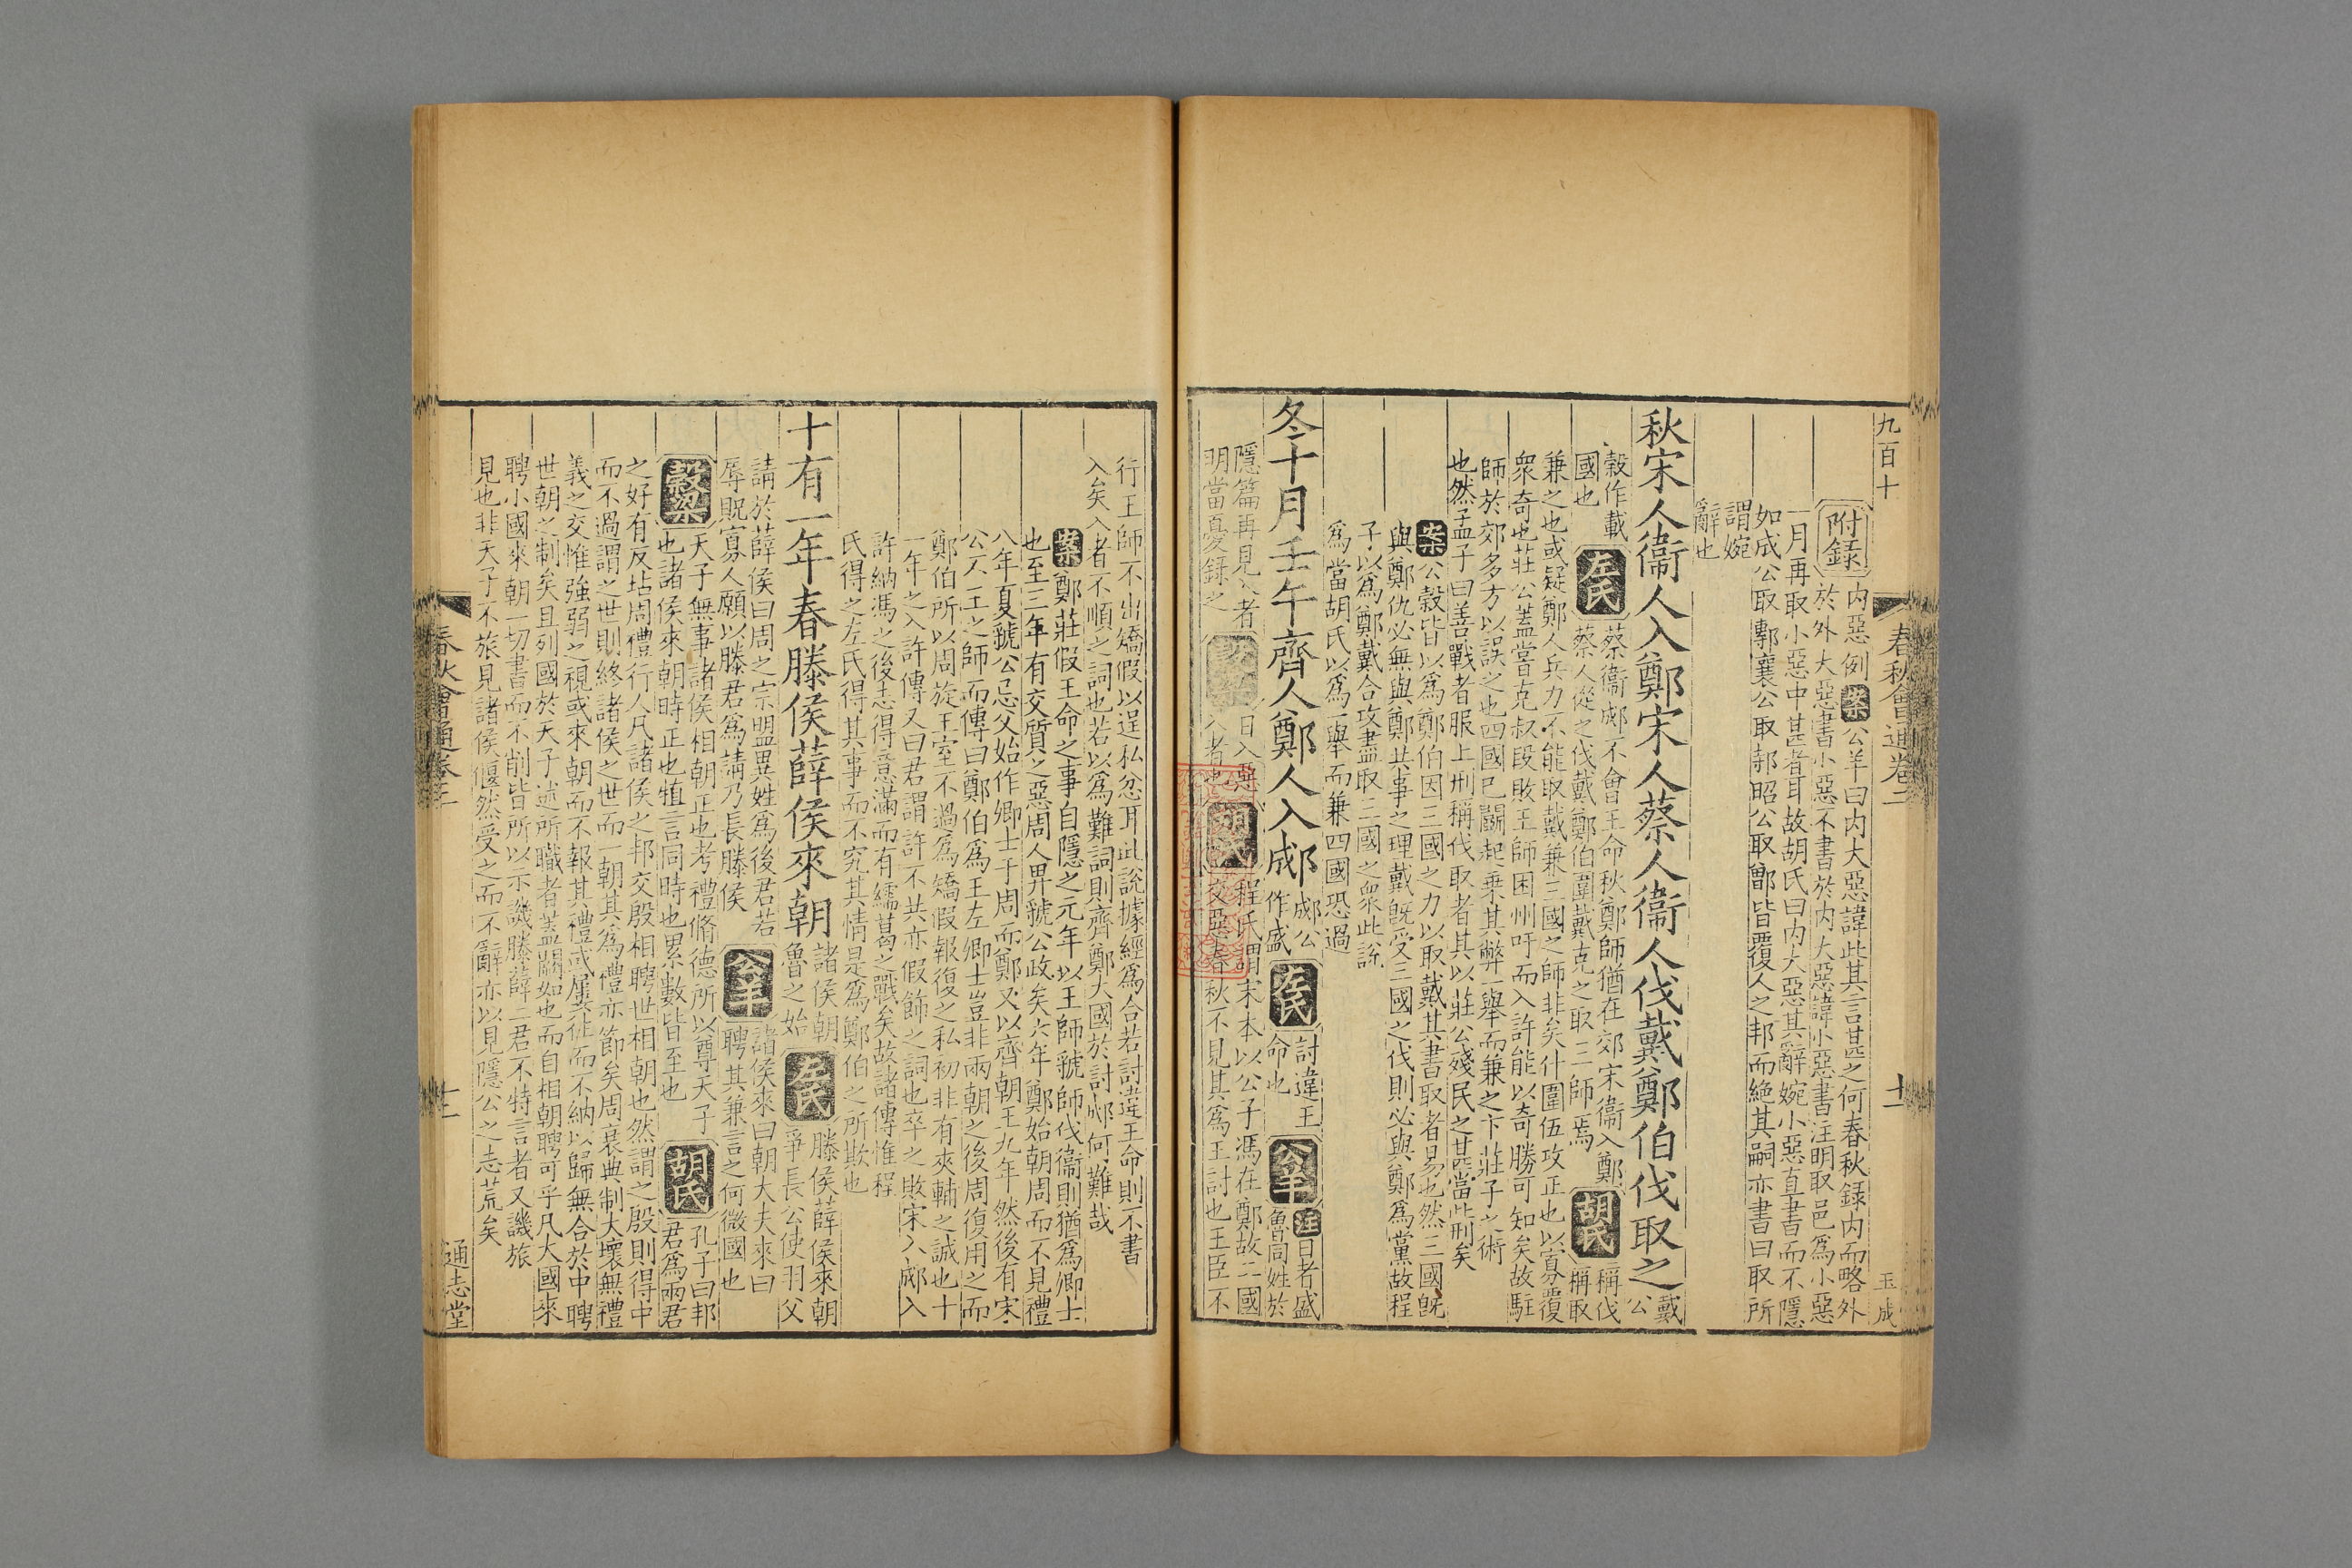 九百十
春秋會通卷二
十一
玉成
附錄
内惡例案公羊曰内大惡諱此其言甚之何春秋録内而略外
於外大惡書小惡不書於内大惡諱小惡書注明取邑爲小惡
一月再取小惡中甚者耳故胡氏曰内大惡其辭婉小惡直書而不隱
如成公取鄟襄公取邿昭公取鄫皆覆人之邦而絶其嗣亦書曰取所
謂婉
辭也
秋宋人衞人入鄭宋人蔡人衞人伐戴鄭伯伐取之
戴
公
穀作載
國也
左氏
蔡衞郕不會王命秋鄭師猶在郊宋衞入鄭
蔡人從之伐戴鄭伯圍戴克之取三師焉
胡氏
稱伐
稱取
兼之也或疑鄭人兵力不能取戴兼三國之師非矣什圍伍攻正也以寡覆
衆奇也莊公蓋嘗克叔段敗王師困州吁而入許能以奇勝可知矣故駐
師於郊多方以誤之也四國已鬭起乗其弊一舉而兼之卞莊子之術
也然孟子曰善戰者服上刑稱伐取者其以莊公殘民之甚當此刑矣
案公穀皆以爲鄭伯因三國之力以取戴其書取者易也然三國旣
與鄭仇必無與鄭共事之理戴旣受三國之伐則必與鄭爲黨故程
子以爲鄭戴合攻盡取三國之衆此説
爲當胡氏以爲一舉而兼四國恐過
冬十月壬午齊人鄭人入郕
郕公
作盛
左氏
討違王
命也
公羊
注曰者盛
魯同姓於
隱篇再見入者
明當憂録之
穀梁
日入惡
入者也
胡氏
程氏謂宋本以公子馮在鄭故二國
交惡春秋不見其爲王討也王臣不
行王師不出矯假以逞私忿耳此説據經爲合若討違王命則不書
入矣入者不順之詞也若以爲難詞則齊鄭大國於討郕何難哉
案鄭莊假王命之事自隱之元年以王師虢師伐衞則猶爲卿士
也至三年有交質之惡周人畀虢公政矣六年鄭始朝周而不見禮
八年夏虢公忌父始作卿士于周而鄭又以齊朝王九年然後有宋
公不王之師而傳曰鄭伯爲王左卿士豈非兩朝之後周復用之而
鄭伯所以周旋王室不過爲矯假報復之私初非有夾輔之誠也十
一年之入許傳又曰君謂許不共亦假飾之詞也卒之敗宋入郕入
許納馮之後志得意滿而有繻葛之戰矣故諸傳惟程
氏得之左氏得其事而不究其情是爲鄭伯之所欺也
十有一年春滕侯薛侯來朝
諸侯朝
魯之始
左氏
滕侯薛侯來朝
爭長公使羽父
請於薛侯曰周之宗盟異姓爲後君若
辱貺寡人願以滕君爲請乃長滕侯
公羊
諸侯來曰朝大夫來曰
聘其兼言之何微國也
穀梁
天子無事諸侯相朝正也考禮脩德所以尊天子
也諸侯來朝時正也犆言同時也累數皆至也
胡氏
孔子曰邦
君爲兩君
之好有反坫周禮行人凡諸侯之邦交殷相聘世相朝也然謂之殷則得中
而不過謂之世則終諸侯之世而一朝其爲禮亦節矣周衰典制大壞無禮
義之交惟強弱之視或來朝而不報其禮或屢往而不納以歸無合於中聘
世朝之制矣且列國於天子述所職者蓋闕如也而自相朝聘可乎凡大國來
聘小國來朝一切書而不削皆所以示譏滕薛二君不特言者又譏旅
見也非天子不旅見諸侯偃然受之而不辭亦以見隱公之志荒矣
春秋會通卷二
十一
通志堂